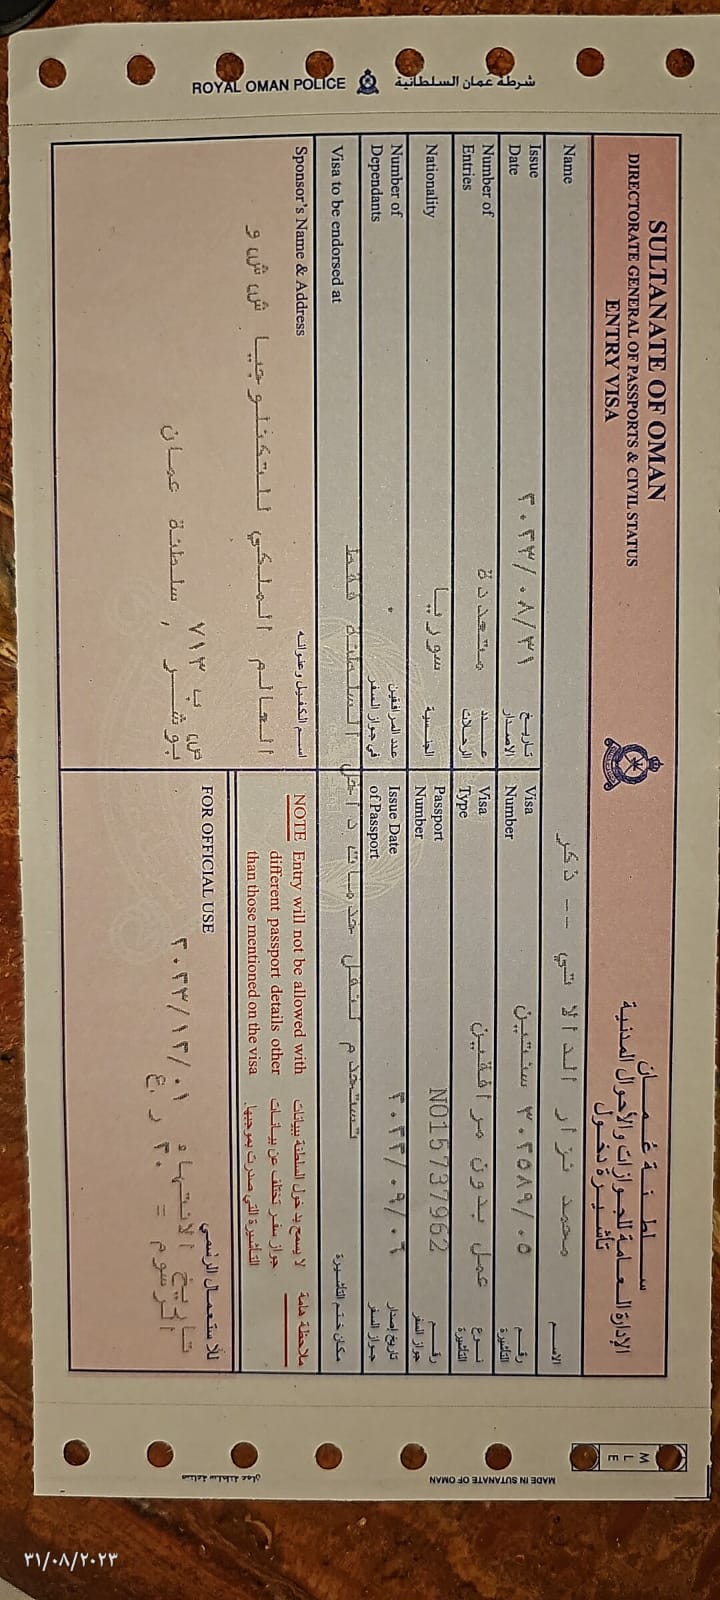 ROYAL OMAN POLICE شرطة عُمان السلطانية
SULTANATE OF OMAN
DIRECTORATE GENERAL OF PASSPORTS & CIVIL STATUS
ENTRY VISA
سلطنة عمان
الإدارة العامة للجوازات والأحوال المدنية
تأشيرة دخول
Name محمد نزار الدالاتي -- ذكر الاسم
Issue Date ٢٠٢٣/٠٨/٣١ تاريخ الاصدار
Visa Number سنتين رقم التأشيرة
Number of Entries متعددة عدد الرحلات
Visa Type عمل بدون مرافقين نوع التأشيرة
Nationality سوريا الجنسية
Passport Number N015737962 رقم جواز السفر
Number of Dependants ٠ عدد المرافقين في جواز السفر
Issue Date of Passport تاريخ إصدار جواز السفر
Visa to be endorsed at تستخدم لنقل خدمات داخل السلطنة فقط مكان ختم التأشيرة
Sponsor's Name & Address اسم الكفيل وعنوانه
العالم الملكي للتكنلوجيا ش ش و
ص ب ٧١٣
بوشر , سلطنة عمان
NOTE Entry will not be allowed with
different passport details other
than those mentioned on the visa
ملاحظة هامة لا يسمح بدخول السلطنة ببيانات
جواز سفر تختلف عن بيانات
التأشيرة التي صدرت بموجبها.
FOR OFFICIAL USE للاستعمال الرسمي
تاريخ الانتهاء
الرسوم = ٢٠ ر.ع
MADE IN SUTANATE OF OMAN
صناعة سلطنة عمان
M
L
E
٣١/٠٨/٢٠٢٣